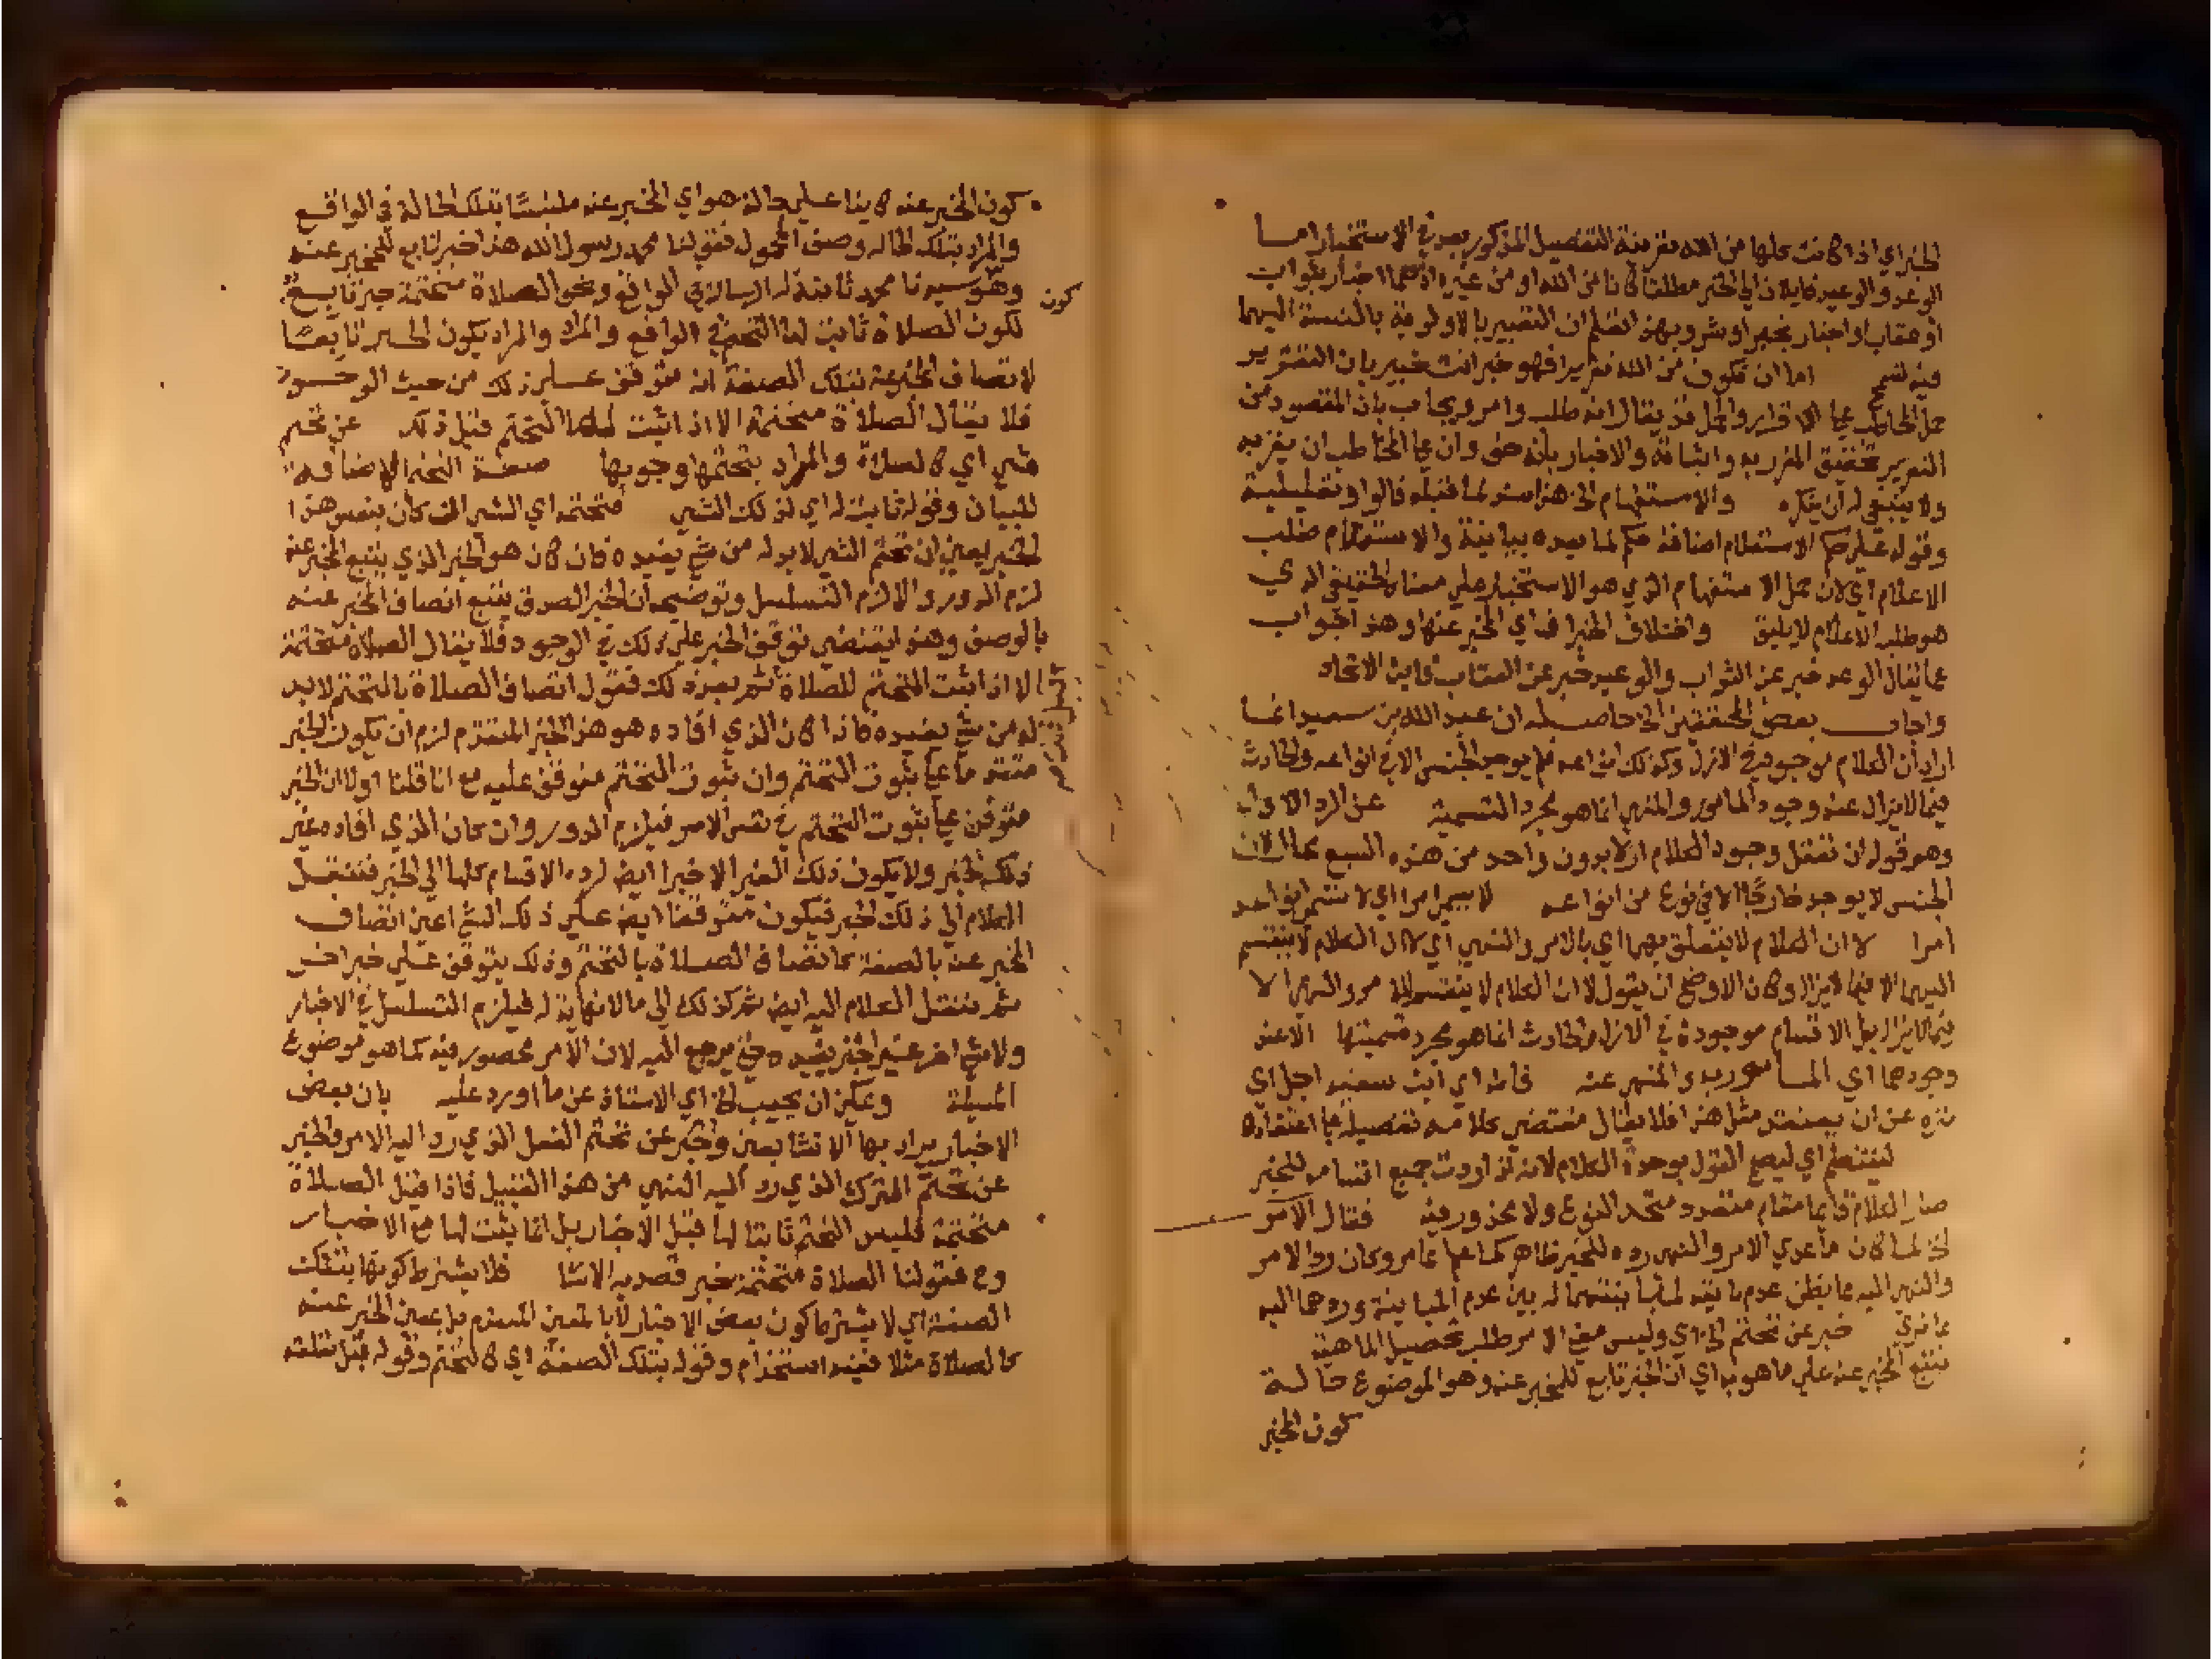 الخبر اي اذا كانت كلها من الله بقرينة التفصيل المذكور بعد في الاستخبار اما
الوعد والوعيد فايلان الي الخبر مطلقا كانا من الله او من غيره اذ هما اخبار بثواب
او عقاب او اخبار بخير او شر وبهذا تعلم ان التعبير بالاولوية بالنسبة اليهما
فيه اما ان تكون من الله تقريرا فهو خبر انت خبير بان التقرير
حمل المخاطب علي الاقرار والحمل قد يقال انه طلب وامر ويجاب بان المقصود من
التقرير تحقيق المقرر به واثباته والاخبار بانه حق وان علي المخاطب ان يقر به
ولا ينبغي له ان ينكره والاستفهام الخ هذا سند لما قبله فالواو تعليلية
وقوله علي حكم الاستعلام اضافة حكم لما بعده بيانية والاستعلام طلب
الاعلام اي لان حمل الاستفهام الذي هو الاستخبار علي معناه الحقيقي الذي
هو طلب الاعلام لا يليق واختلاف المخبرات اي المخبر عنها وهذا جواب
عما يقال الوعد خبر عن الثواب والوعيد خبر عن العقاب فاين الاتحاد
واجاب بعض المحققين الخ حاصله ان عبد الله بن سعيد انما
اراد ان الكلام موجود في الازل وكذلك انواعه فلم يوجد الجنس الا في انواعه والحادث
فيما لا يزال عند وجود المامور والمنهي انما هو مجرد التسمية عن الرد الاول
وهو قوله ان تعقل وجود الكلام ازلا بدون واحد من هذه السبع محال لان
الجنس لا يوجد خارجا الا في نوع من انواعه لا يسمي امرا اي لا يسمي
امرا لان الكلام لا يتعلق بهما اي بالامر والنهي اي لان الكلام لا ينقسم
اليهما الا فيما لا يزال وكان الاوضح ان يقول لان الكلام لا ينقسم للامر والنهي الا
فيما لا يزال بل الاقسام موجودة في الازل والحادث انما هو مجرد تسميتها الا عند
وجودهما اي المامور به والمنهي عنه فابن سعيد اجل اي
نزه عن ان يعتقد مثل هذا فلا يقال مقتضي كلامه تفصيله علي اعتقاده
لينتظم اي ليصح القول بوحدة الكلام لانه لو اردت جميع اقسامه للخبر
صار الكلام قائما مقام متعدد متحد النوع ولا محذور فيه فقال الامر
الخ لما كان ما عدي الامر والنهي رده للخبر ظاهر كما علم مما مر وكان رد الامر
والنهي اليه مما يظن عدم تاتيه لما بينهما له بين عدم المباينة وردهما اليه
بما تري خبر عن تحتم الخ اي وليس معني الامر طلب تحصيل الماهية
تتبع المخبر عنه علي ما هو به اي ان الخبر تابع للمخبر عنه وهو الموضوع حالة
كون الخبر
كون المخبر عنه كاينا علي حالة هو اي المخبر عنه ملتبسا بتلك الحالة في الواقع
والمراد بتلك الحالة وصف المحمول فقولنا محمد رسول الله هذا خبر تابع للمخبر عنه
وهو سيدنا محمد ثابتة له الرسالة في الواقع ونحو الصلاة متحتمة خبر تابع
كون
لكون الصلاة ثابت لها التحتم في الواقع والمراد بكون الخبر تابعا
لاتصاف المخبر عنه بتلك الصفة انه متوقف علي ذلك من حيث الوجود
فلا يقال الصلاة متحتمة الا اذا ثبت لها التحتم قبل ذلك عن تحتم
شي اي كالصلاة والمراد بتحتمها وجوبها صفة التحتم الاضافة
للبيان وقوله ثابتة له اي لذلك الشي متحتمة اي الشي اما ان كان بنفس هذا
الخبر يعني ان تحتم الشي لا بد له من شي يفيده فان كان هو الخبر الذي يتبع المخبر عنه
لزم الدور والا لزم التسلسل وتوضيحه ان الخبر الصدق يتبع اتصاف المخبر عنه
بالوصف وهذا يقتضي توقف الخبر علي ذلك في الوجود فلا يقال الصلاة متحتمة
الا اذا ثبت التحتم للصلاة ثم بعد ذلك فقول اتصاف الصلاة بالتحتم لابد
له من شي يفيده فاذا كان الذي افاده هو هذا الخبر المتقدم لزم ان يكون الخبر
متقدما علي ثبوت التحتم وان ثبوت التحتم متوقف عليه مع انا قلنا اولا ان الخبر
متوقف علي ثبوت التحتم في نفس الامر فيلزم الدور وان كان الذي افاده غير
ذلك الخبر ولا يكون ذلك الغير الا خبرا ايضا لرده الاقسام كلها الي الخبر فينتقل
الكلام الي ذلك الخبر فيكون متوقفا ايضا علي ذلك الشي اعني اتصاف
المخبر عنه بالصفة كاتصاف الصلاة بالتحتم وذلك يتوقف علي خبر اخر
ثم ينتقل الكلام اليه ايضا ثم كذلك الي ما لا نهاية له فيلزم التسلسل في الاخبار
ولا شي اخر غير الخبر يفيده حتي يرجع اليه لان الامر محصور فيه كما هو موضوع
المسيلة ويمكن ان يجيب الخ اي الاستاذ عن ما اورد عليه بان بعض
الاخبار يراد بها الانشا يعني والخبر عن تحتم الفعل الذي رد اليه الامر والخبر
عن تحتم الترك الذي رد اليه النهي من هذا القبيل فاذا قيل الصلاة
متحتمة فليس التحتم ثابتا لها قبل الاخبار بل انما يثبت لها مع الاخبار
وح فقولنا الصلاة متحتمة خبر قصد به الانشا فلا يشترط كونها بتلك
الصفة اي لا يشترط كون بعض الاخبار لا بالمعني المتقدم بل بمعني المخبر عنه
كالصلاة مثلا ففيه استخدام وقوله بتلك الصفة اي كالتحتم وقوله قبل تعلقه